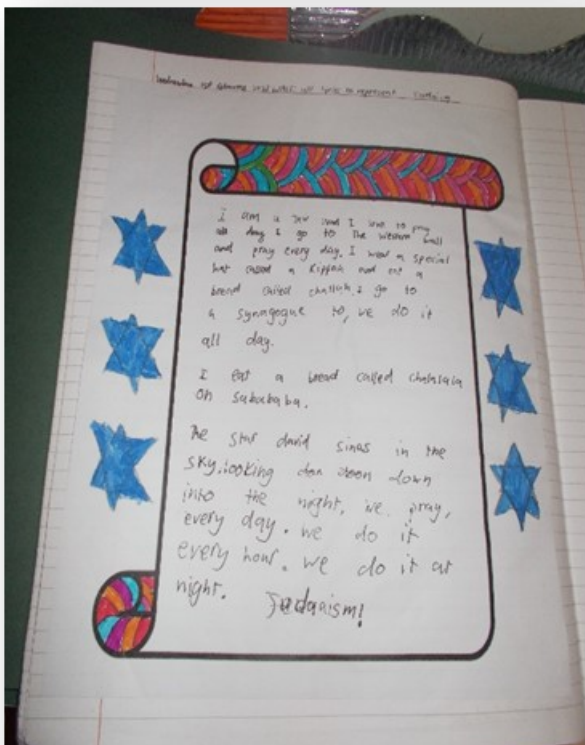 to represent
I am a Jew and I love to pray
all day I go to the western wall
and pray every day. I wear a special
hat called a Kippah and eat a
bread called challah. I go to
a synagogue to, we do it
all day.
I eat a bread called chalalala
on sabababa.
The star david sines in the
sky. looking don doon down
into the night. we pray,
every day. we do it
every hour. we do it at
night.
Judaism!